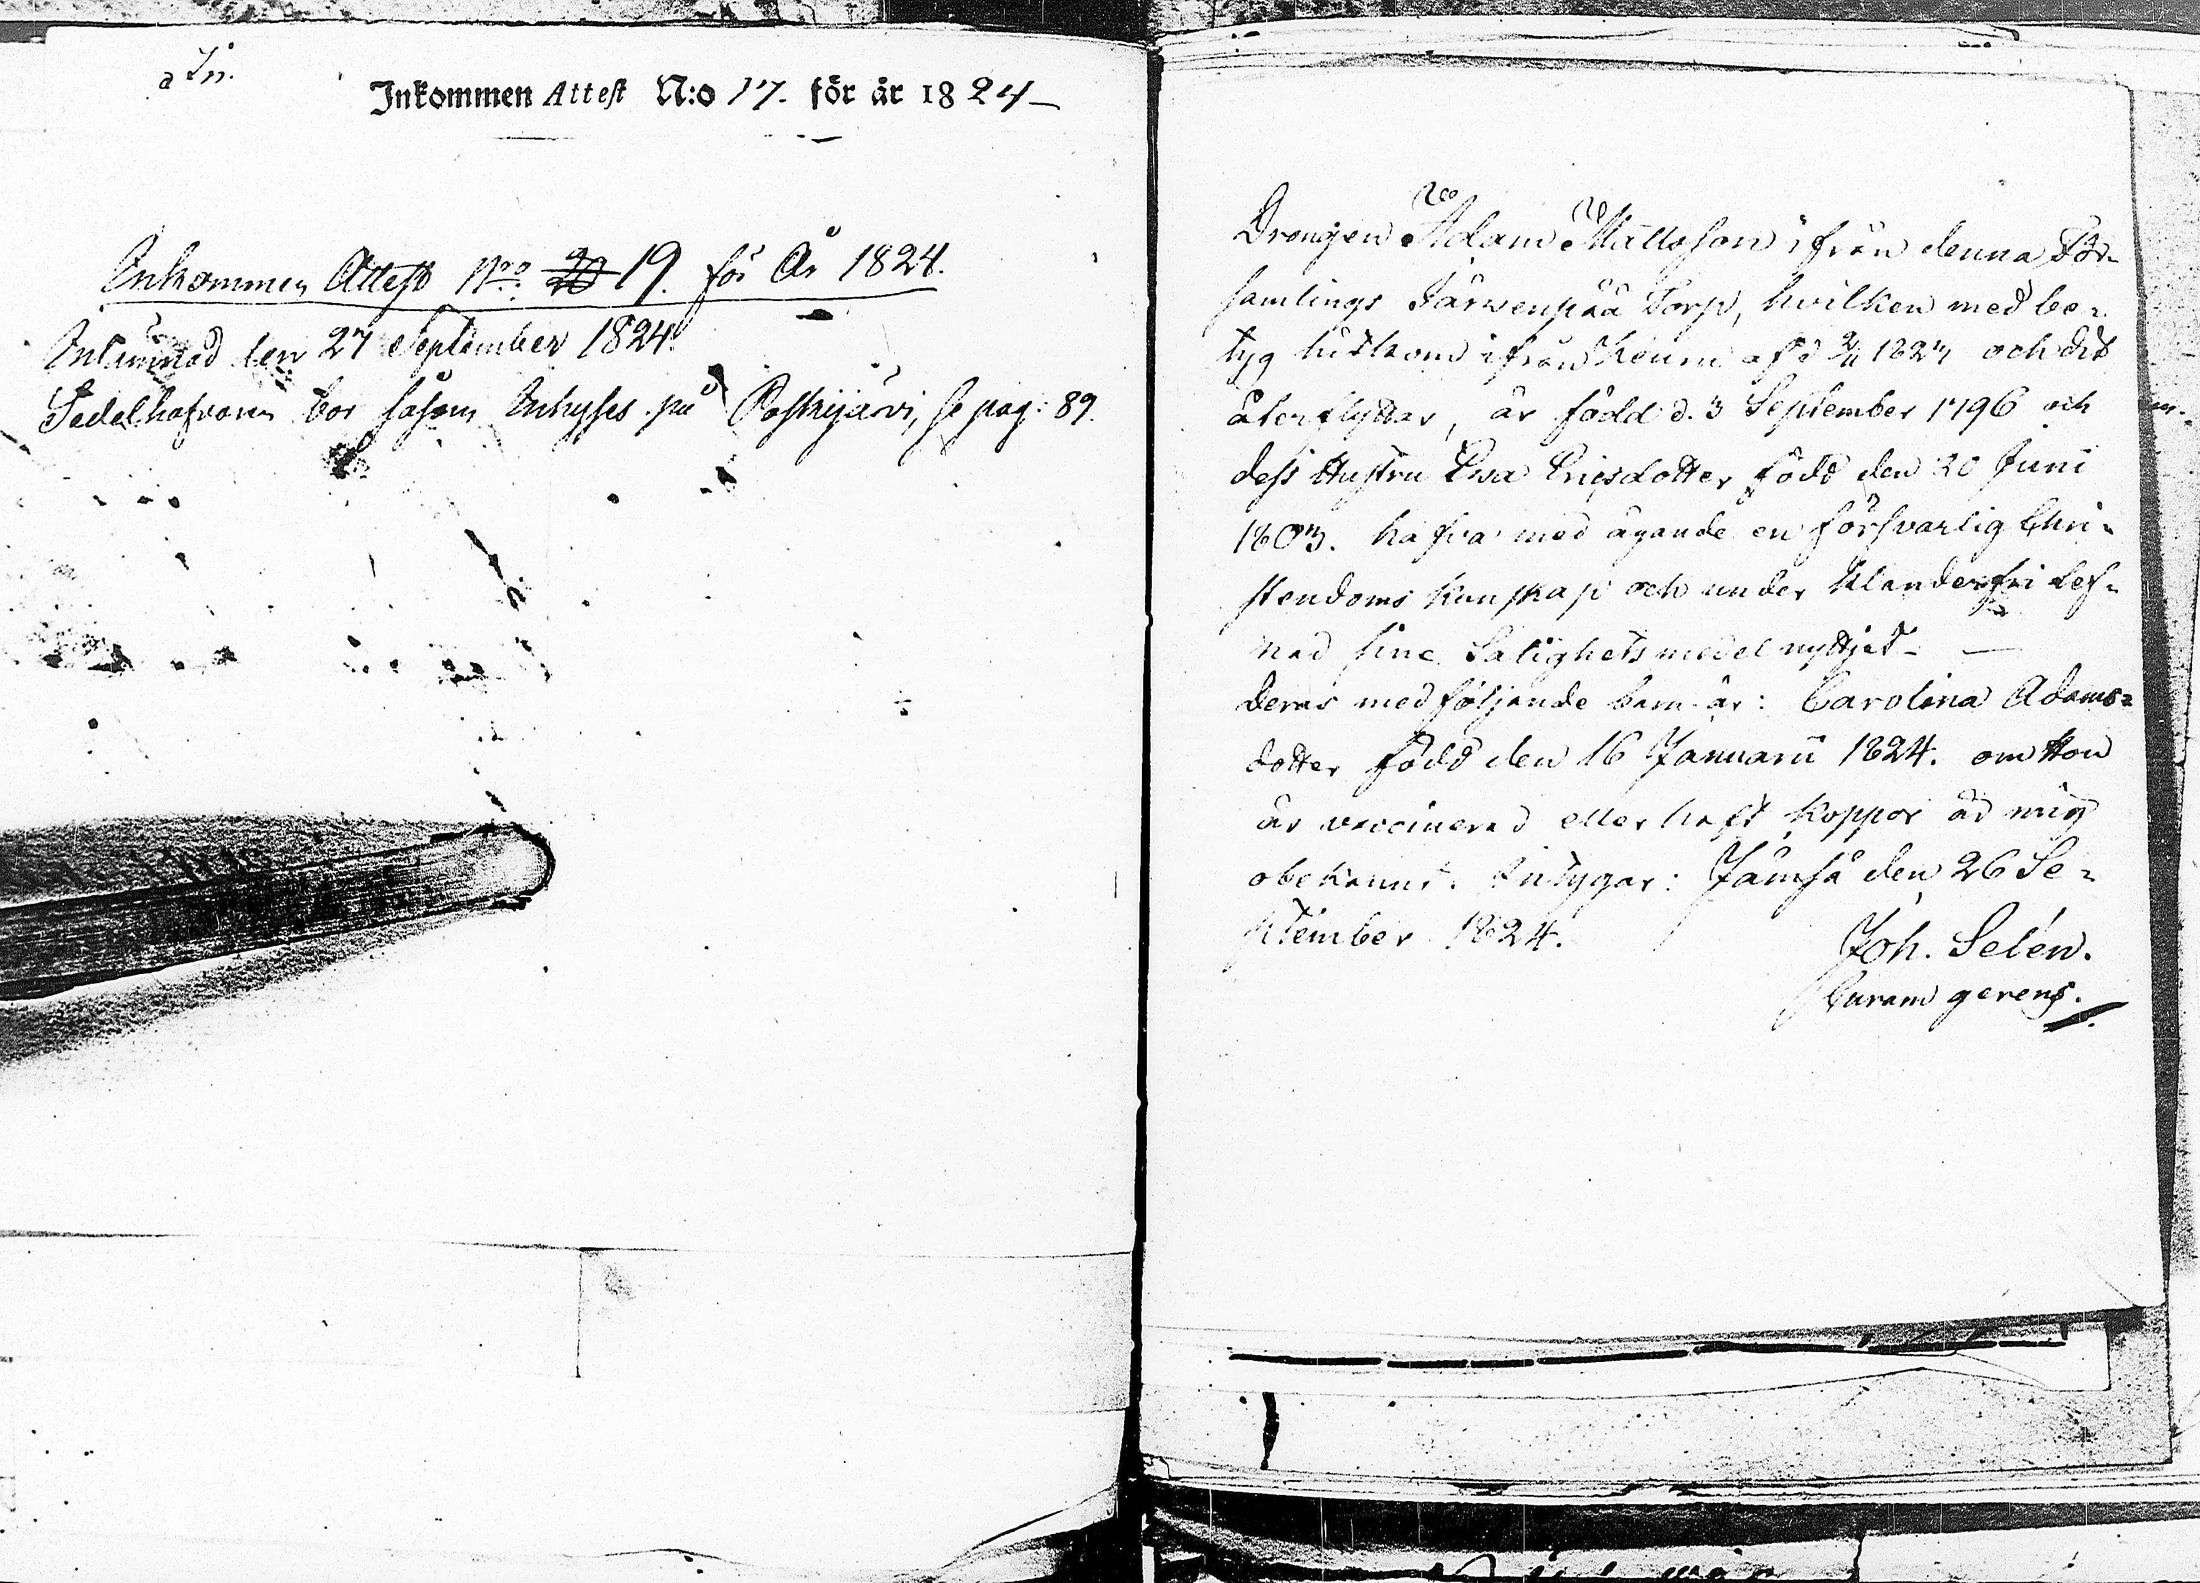 a In.
Inkommen Attest N:o 17. för år 1824
Inkommen Attest Nro 20 19. för År 1824.
Inlemnad den 27 September 1824.
Sedelhafvaren bor såsom Inhyses på Poskijärvi, se pag: 89.
Drengen Adam Mattsson ifrån denna För-
samlings Järvenpää Torp, hvilken med be-
tyg hitkom ifrån Keuru af d 2/11 1823 och dit
återflyttar, är född d. 3 September 1796 och
dess Hustru Ewa Ericsdotter född den 20 Juni
1803. hafva med ägande en försvarlig Chri-
stendoms kunskap och under klanderfri lef-
nad sine Salighetsmedel nyttjat.
deras medföljande barn är: Carolina Adams-
dotter född den 16 Januarii 1824. om Hon
är vaccinerad eller haft koppor är mig
obekannt. Intygar: Jämsä den 26 Se-
ptember 1824.
Joh. Selén.
Curam gerens.